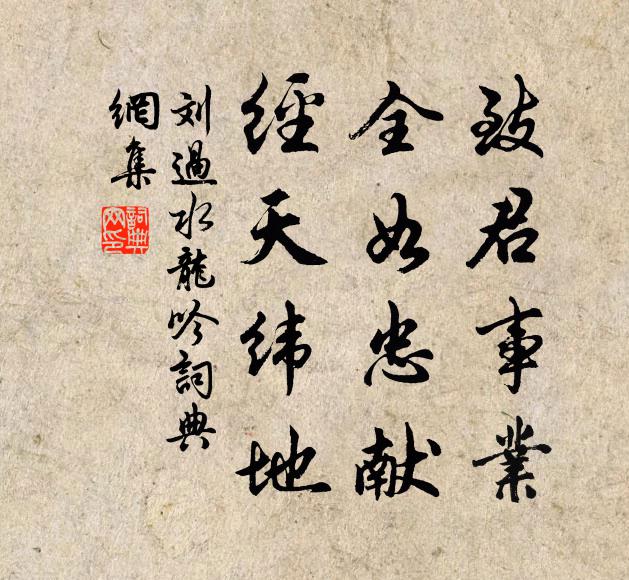 致君事業
全如忠献
經天緯地
刘過水龍吟詞典
網集
詞典網印